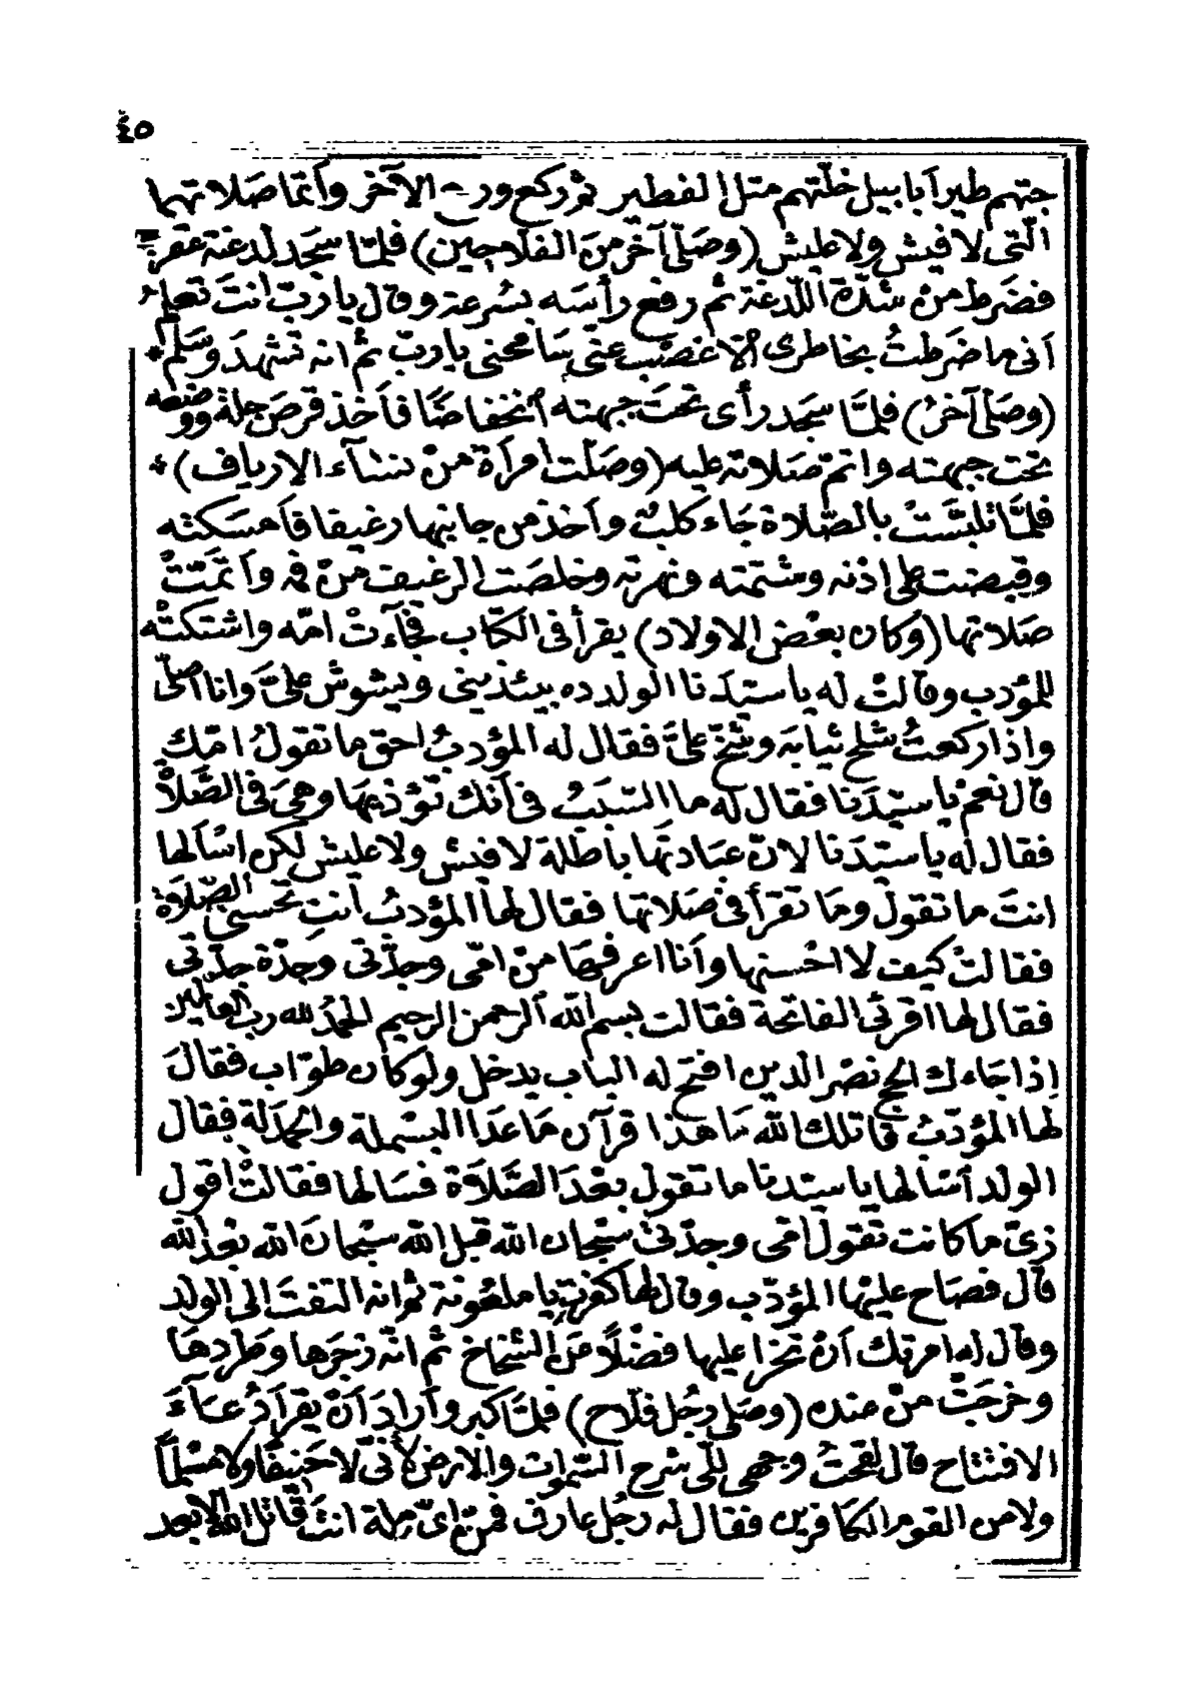 ٤٥
جتهم طيرا ابابيل خلّتهم متل الفطير ثم ركع ور الآخر وأتما صلاتهما
الّتى لا فيش ولا عليش (وصَلّى آخر منَ الفلاحين) فلمّا سجَد لدغته عقربة
فضرط منْ شدّة اللّدغة ثم رفع رأسَه بسُرعة وقال يا ربّ انتَ تعلم
انى ما ضرَطتُ بخاطرى لا تغضب عنّى سَامحنى ياربّ ثم انه تشهدَ وسَلم *
(وصَلى آخرُ) فلمَّا سجَد رأى تحتَ جبهته انخفاضًا فأخذ قرصَ جلة ووضعه
تحت جبهته واتمّ صَلاته عليه (وصَلّت امرأة منْ نسَآء الارياف) *
فلمَّا تلبّسَتْ بالصّلاة جَاء كلبٌ وأخذ من جابنها رغيفا فأمسَكته
وقبضت على اذنه وشتمته ونهرته وخلصَت الرغيف منْ فمه وأتمّتْ
صَلاتها (وكان بعْض الاولاد) يقرأ فى الكتّاب فجآءتْ امّه واشتكتْه
للمؤدب وقالتْ له ياسيّدَنا الولد ده بيئذينى ويشوش علىَّ وانا اصلّى
واذا ركعتُ شلح ثيابَه وشخّ علىَّ فقال له المؤدبُ احق ما تقولُ امّك
قال نعمْ ياسيّدَنا فقال له ما السّبَبُ فى أنك تؤذيهَا وهىَ فى الصَّلاة
فقال له ياسيّدَنا لانّ عبَادتَها باطلة لا فيش ولا عليش لكن اسْألها
انتَ ما تقول ومَا تقرأ فى صَلاتها فقال لها المؤدبُ أنتِ تحسنى الصّلاة
فقالتْ كيف لا احْسنها وأنا اعرفهَا منْ امّى وجدّتى وجدّة جدّتى
فقال لها اقرئى الفاتحة فقالت بسم الله الرحمن الرحيم الحمْدُ لله ربّ العالمين
إذا جَاءك الحج نصْر الدين افتحْ له الباب يدخل ولوْ كان طوّاب فقالَ
لها المؤدّبُ قاتلك الله مَا هذا قرآن مَا عَدَا البسْملة والحمْدَلة فقال
الولد أسْألها ياسيّدنا ما تقول بعْدَ الصَّلاَة فسَألها فقالتْ اقول
زىّ ما كانت تقول امّى وجدّتى سبْحان الله قبل الله سبْحانَ الله بعْد الله
قال فصَاح عليْها المؤدّب وقال لها كفرتِ يا ملعُونة ثم انه التفتَ الى الولد
وقال له امرتك أنْ تخرا عليها فضْلاً عَن الشّخاخ ثم انّه زجَرها وطردهَا
وخرجَتْ منْ عنده (وصَلى رجُل فلّاح) فلمَّا كبر وأرادَ أنْ يقرأ دُعَآءَ
الافتتاح قال لقحْتُ وجهى للّى شرح السّموات والارضْ لأنّى لا حَنيفًا ولا مسْلماً
ولا من القوم الكافرين فقال له رجُل عارف فمنْ اىّ ملة انتَ قاتل الله الابعد